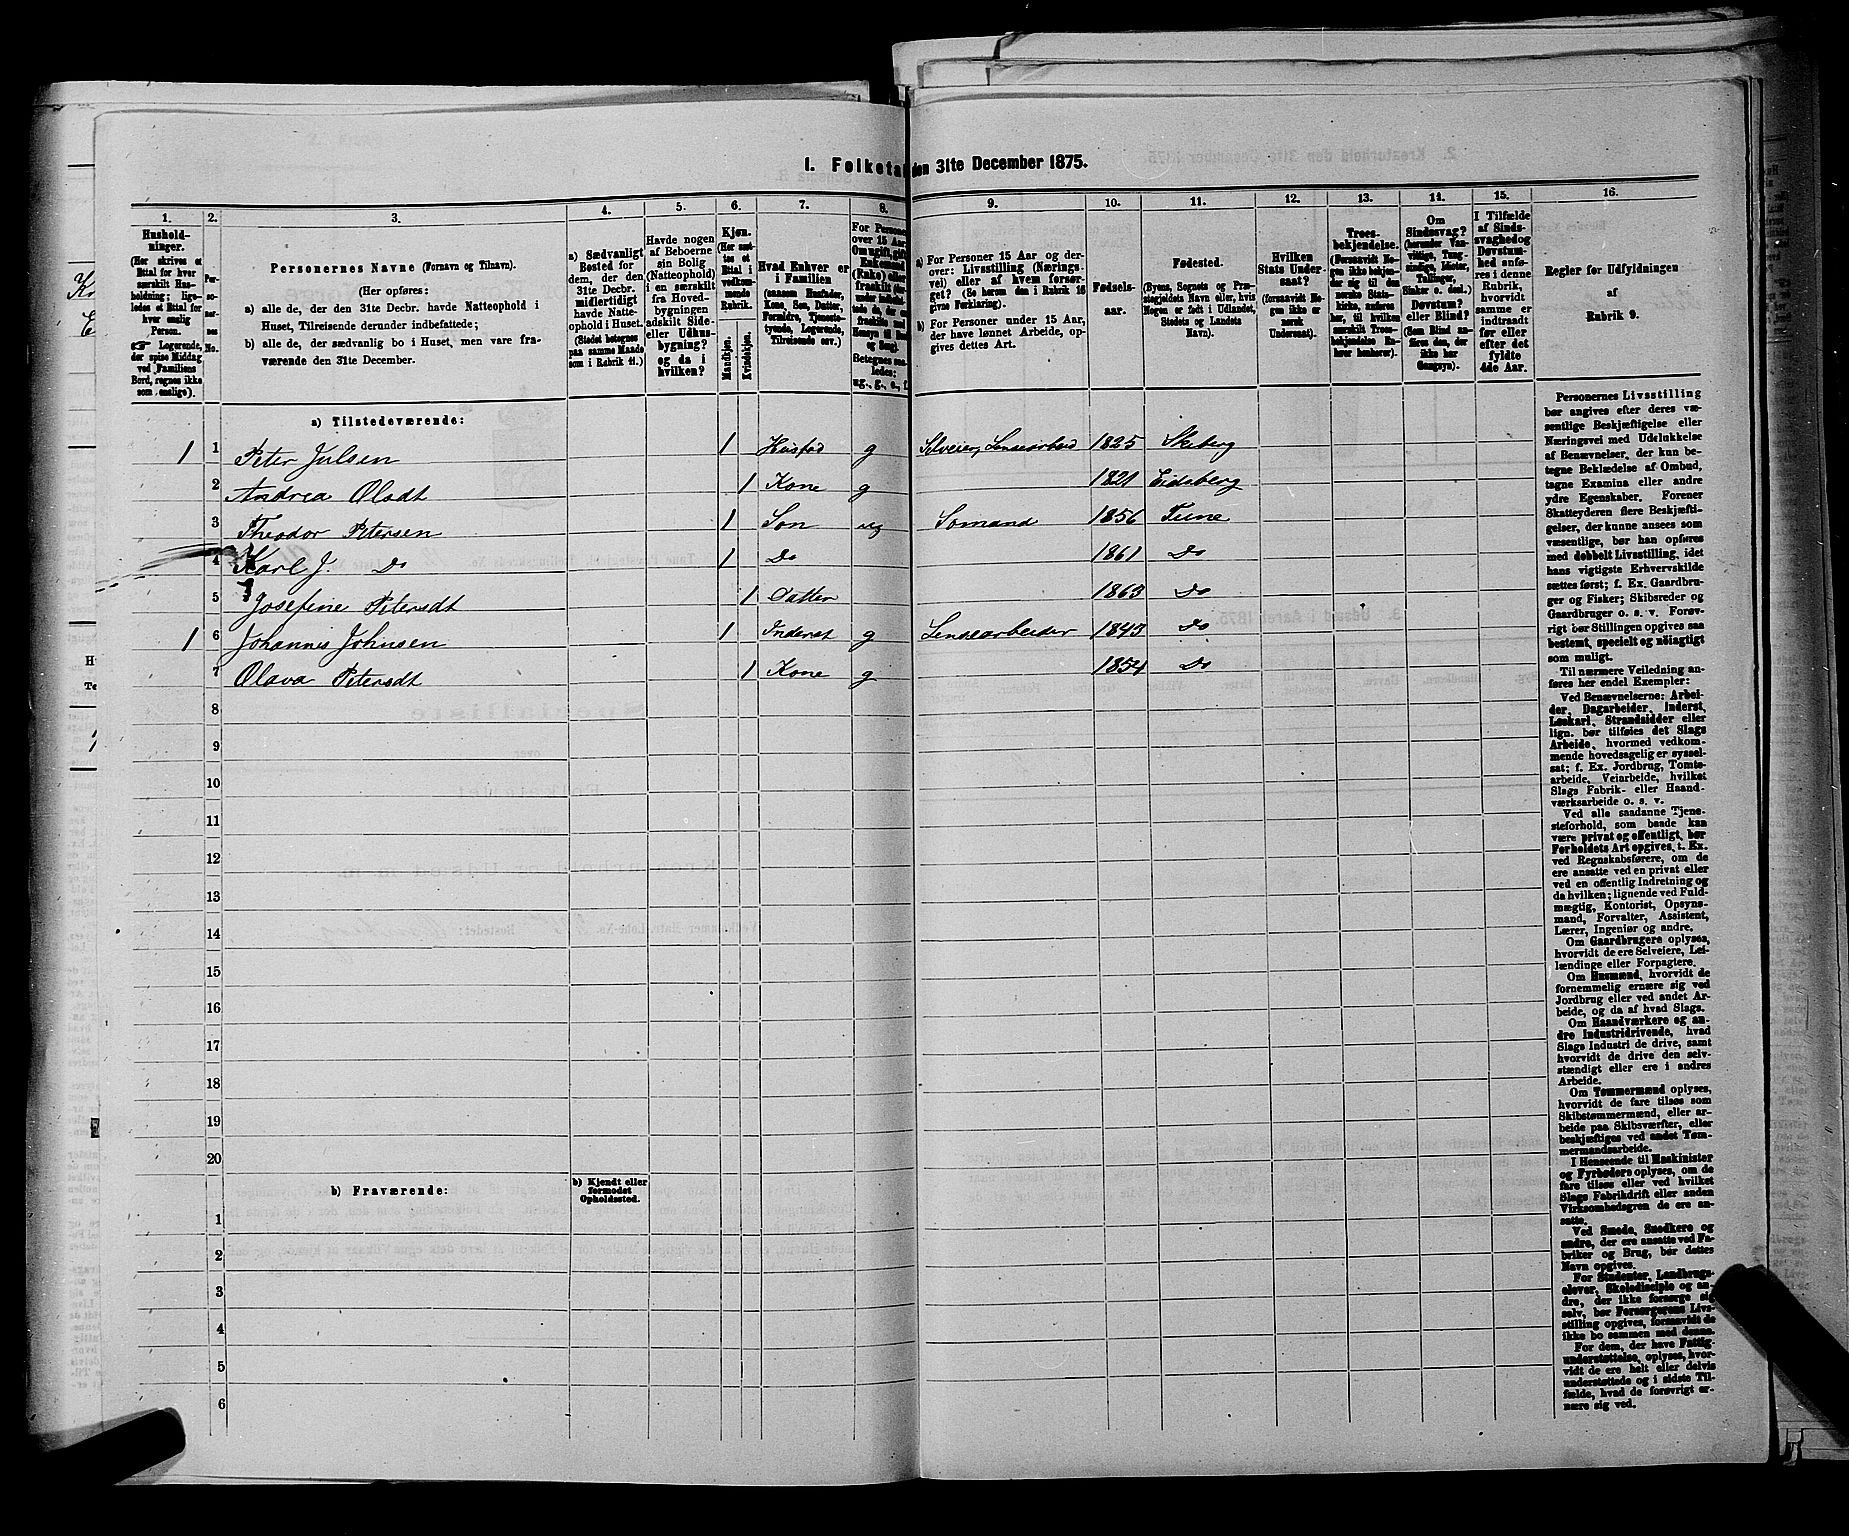 I. Folketa den 31te December 1875.
1. 2. 3. 4. 5. 6. 7. 8. 9. 10. 11. 12. 13. 14. 15. 16.
Hushold-
ninger.
(Her skrives et
Ettal for hver
særskilt Hus-
holdning; lige-
ledes et Ettal for
hver enslig
Person.
Logerende,
der spise Middag
ved Familiens
Bord, regnes ikke
som enslige).
Per-
so-
ner-
nes
No.
Personernes Navne (Fornavn og Tilnavn).
(Her opføres:
a) alle de, der den 31te Decbr. havde Natteophold i
Huset, Tilreisende derunder indbefattede;
b) alle de, der sædvanlig bo i Huset, men vare fra-
værende den 31te December.
a) Sædvanligt
Bosted for
dem, der den
31te Decbr.
midlertidigt
havde Natte-
ophold i Huset.
(Stedet betegnes
paa samme Maade
som i Rubrik 11.)
Havde nogen
af Beboerne
sin Bolig
(Natteophold)
i en særskilt
fra Hoved-
bygningen
adskilt Side-
eller Udhus-
bygning?
og da i
hvilken?
Kjøn.
(Her sæt-
tes et
Ettal i
vedkom-
mende
Rubrik.
Mandkjøn.
Kvindekjøn.
Hvad Enhver er
i Familien
(saasom Husfader,
Kone, Søn, Datter,
Forældre, Tjeneste-
tyende, Logerende,
Tilreisende osv.)
For Personer
over 15 Aar:
Om ugift, gift,
Enkemand
(Enke) eller
fraskilt
Betegnes saa-
ledes:
ug., g., e., f.
a) For Personer 15 Aar og der-
over: Livsstilling (Nærings-
vei) eller af hvem forsør-
get? (Se herom den i Rubrik 16
givne Forklaring).
b) For Personer under 15 Aar,
der have lønnet Arbeide, op-
gives dettes Art.
Fødsels-
aar.
Fødested.
(Byens, Sognets og Præ-
stegjeldets Navn eller, hvis
Nogen er født i Udlandet,
Stedets og Landets
Navn).
Hvilken
Stats Under-
saat?
(forsaavidt No-
gen ikke er
norsk
Undersaat).
Troes-
bekjendelse.
(Forsaavidt No-
gen ikke bekjen-
der sig til den
norske Stats-
kirke, anføres
her, til hvilken
særskilt Troes-
bekjendelse En-
hver henhører).
Om
Sindssvag?
(herunder Van-
vittige, Tung-
sindige, Idioter,
Tullinger,
Sinker o. desl.)
Døvstum?
eller Blind?
(Som Blind an-
føres den, der
ikke har
Gangsyn).
I Tilfælde
af Sinds-
svaghed og
Døvstum-
hed anfø-
res i denne
Rubrik,
hvorvidt
samme er
indtraadt
før eller
efter det
fyldte
4de Aar.
Regler for Udfyldningen
af
Rubrik 9.
a) Tilstedeværende:
1 1 Peter Julsen 1 Husfad g Selveier, Lensearbeid 1825 Skeberg
2 Andrea Olsdt 1 Kone g 1821 Eidsberg
3 Theodor Petersen 1 Søn ug Sømand 1856 Tune
4 Karl J. Do 1 Do 1861 Do
5 Josefine Petersdt 1 Datter 1863 Do
1 6 Johannis Johnsen 1 Inderst g Lensearbeider 1843 Do
7 Olava Petersdt 1 Kone g 1854 Do
8
9
10
11
12
13
14
15
16
17
18
19
20
b) Fraværende:
b) Kjendt eller
formodet
Opholdssted.
1
2
3
4
5
6
Personernes Livsstilling
bør angives efter deres væ-
sentlige Beskjæftigelse eller
Næringsvei med Udelukkelse
af Benævnelser, der kun be-
tegne Beklædelse af Ombud,
tagne Examina eller andre
ydre Egenskaber. Forener
Skatteyderen flere Beskjæfti-
gelser, der kunne ansees som
væsentlige, bør han opføres
med dobbelt Livsstilling, idet
hans vigtigste Erhvervskilde
sættes først; f. Ex. Gaardbru-
ger og Fisker; Skibsreder og
Gaardbruger o. s. v. Forøv-
rigt bør Stillingen opgives saa
bestemt, specielt og nøiagtigt
som muligt.
Til nærmere Veiledning an-
føres her endel Exempler:
Ved Benævnelserne: Arbei-
der, Dagarbeider, Inderst,
Løskarl, Strandsidder eller
lign. bør tilføies det Slags
Arbeide, hvormed vedkom-
mende hovedsagelig er syssel-
sat; f. Ex. Jordbrug, Tomte-
arbeide, Veiarbeide, hvilket
Slags Fabrik- eller Haand-
værksarbeide o. s. v.
Ved alle saadanne Tjene-
steforhold, som baade kan
være privat og offentligt, bør
Forholdets Art opgives, t. Ex.
ved Regnskabsførere, om de
ere ansatte ved en privat eller
ved en offentlig Indretning og
da hvilken; lignende ved Fuld-
mægtig, Kontorist, Opsyns-
mand, Forvalter, Assistent,
Lærer, Ingeniør og andre.
Om Gaardbrugere oplyses,
hvorvidt de ere Selveiere, Lei-
lændinge eller Forpagtere.
Om Husmænd, hvorvidt de
fornemmelig ernære sig ved
Jordbrug eller ved andet Ar-
beide, og da af hvad Slags.
Om Haandværkere og an-
dre Industridrivende, hvad
Slags Industri de drive, samt
hvorvidt de drive den selv-
stændigt eller ere i andres
Arbeide.
Om Tømmermænd oplyses,
hvorvidt de fare tilsøs som
Skibstømmermænd, eller ar-
beide paa Skibsværfter, eller
beskjæftiges ved andet Tøm-
mermandsarbeide.
I Henseende til Maskinister
og Fyrbødere oplyses, om de
fare tilsøs eller ved hvilket
Slags Fabrikdrift eller anden
Virksomhedsgren de ere an-
satte.
Ved Smede, Snedkere og
andre, der ere ansatte ved Fa-
briker og Brug, bør dettes
Navn opgives.
For Studenter, Landbrugs-
elever, Skoledisciple og an-
dre, der ikke forsørge sig
selv, bør Forsørgerens Livs-
stilling opgives, forsaavidt de
ikke bo sammen med denne.
For dem, der have Fattig-
understøttelse, oplyses, hvor-
vidt de ere helt eller delvis
understøttede og i sidste Til-
fælde, hvad de forøvrigt er-
nære sig ved.